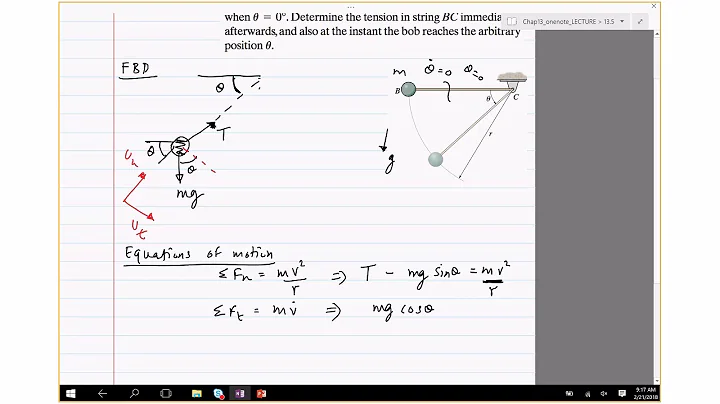 when θ = 0°. Determine the tension in string BC immedia
afterwards, and also at the instant the bob reaches the arbitrary
position θ.
Chap13_onenote_LECTURE > 13.5
FBD
θ
T
θ
θ
mg
u_n
u_t
m
θ̇=0
θ=0
B
C
θ
r
g
Equations of motion
ΣF_n = mv²/r ⇒ T - mg sinθ = mv²/r
ΣF_t = mv̇ ⇒ mg cosθ
9:17 AM
2/21/2018